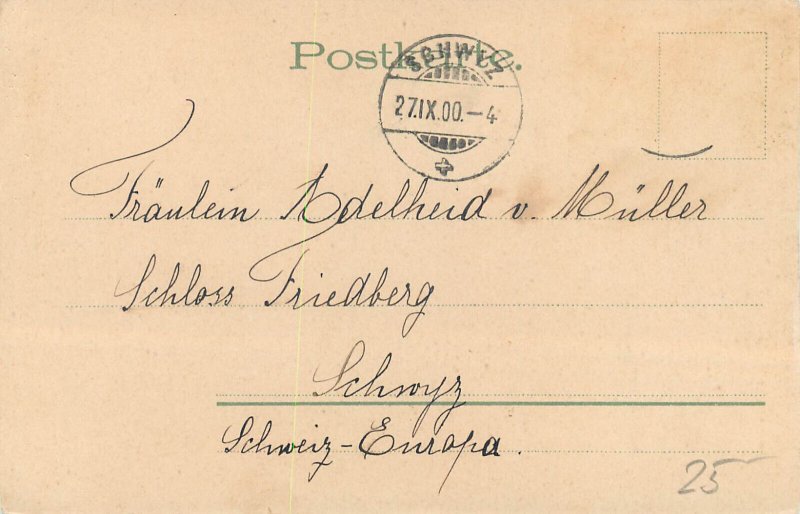 Postkarte.
SCHWYZ
27.IX.00.–4
Fräulein Adelheid v. Müller
Schloss Friedberg
Schwyz
Schweiz-Europa.
25